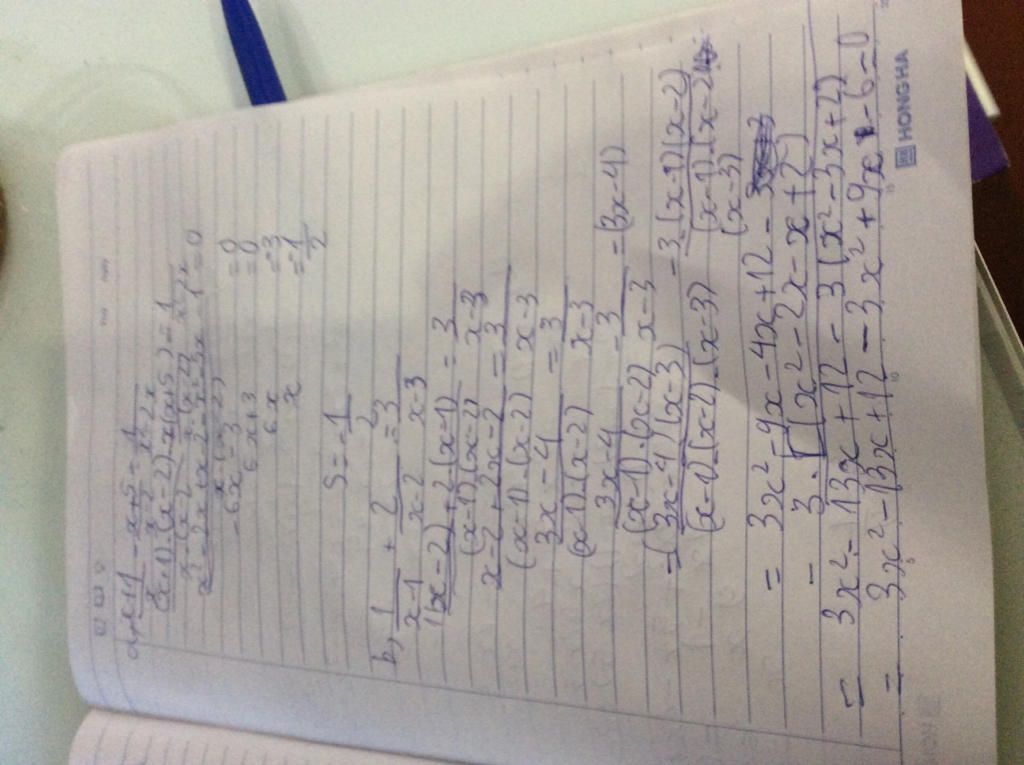 a, x+1/x - x+5/x-2 = 1/x²-2x
(x+1).(x-2)-x(x+5) = 1
x.(x-2)
= 0
-6x-3 = 0
6x+3 = 0
6x = -3
x = -1/2
S = -1/2
b, 1/x-1 + 2/x-2 = 3/x-3
1(x-2)+2(x-1)/(x-1)(x-2) = 3/x-3
x-2+2x-2/(x-1).(x-2) = 3/x-3
3x-4/(x-1).(x-2) = 3/x-3
3x-4/(x-1).(x-2) - 3/x-3 = (3x-4)
= (3x-4)(x-3)/(x-1)(x-2).(x-3) - 3.(x-1)(x-2)/(x-1).(x-2)
(x-3)
= 3x²-9x-4x+12 -
- 3.[(x²-2x-x+2)
= 3x²-13x+12-3(x²-3x+2)
= 3x²-13x+12-3x²+9x-6=0
HONG HA